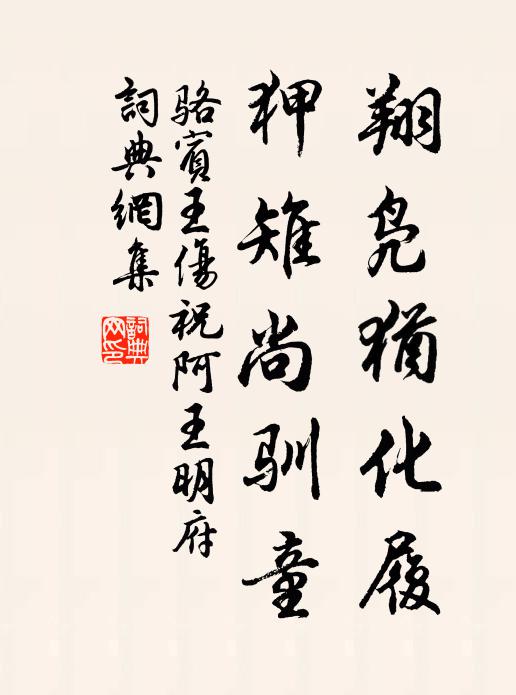 翔凫猶化履
狎雉尚馴童
骆賓王傷祝阿王明府
詞典網集
詞典网印